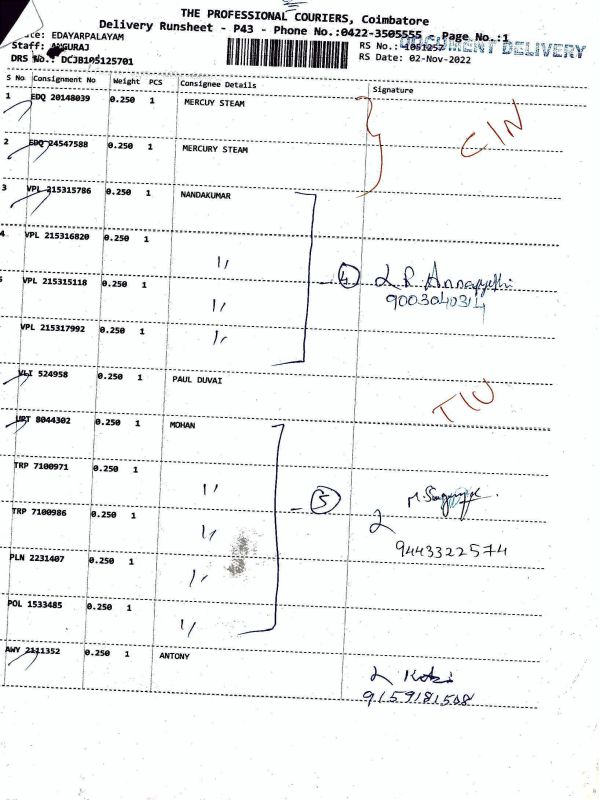 THE PROFESSIONAL COURIERS, Coimbatore
Delivery Runsheet - P43 - Phone No.:0422-3505555 - Page No.:1
EDAYARPALAYAM
Staff: ANGURAJ
RS No.: 1051257
DOCUMENT DELIVERY
DRS No.: DCJB105125701
RS Date: 02-Nov-2022
S No Consignment No Weight PCS Consignee Details Signature
1 EDQ 20148039 0.250 1 MERCUY STEAM
CIN
2 EDQ 24547588 0.250 1 MERCURY STEAM
3 VPL 215315786 0.250 1 NANDAKUMAR
4 VPL 215316820 0.250 1 〃
VPL 215315118 0.250 1 〃
4
9003040314
VPL 215317992 0.250 1 〃
VLI 524958 0.250 1 PAUL DUVAI
TIN
URT 8044302 0.250 1 MOHAN
TRP 7100971 0.250 1 〃
5
TRP 7100986 0.250 1 〃
9443322574
PLN 2231407 0.250 1 〃
POL 1533485 0.250 1 〃
AWY 2111352 0.250 1 ANTONY
9159181508